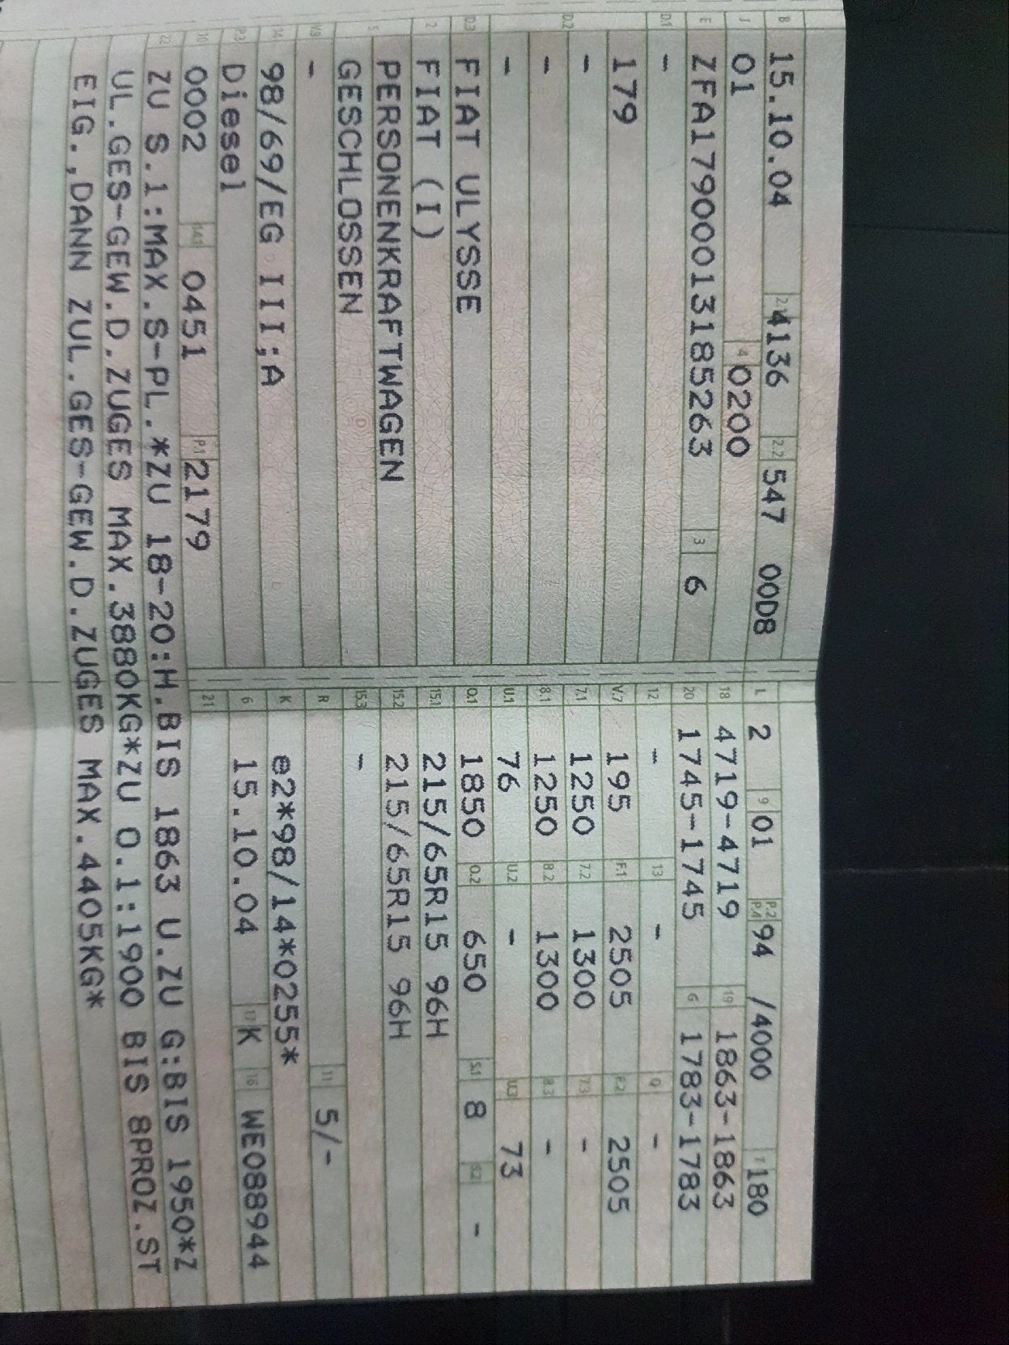 B 15.10.04 2.1 4136 2.2 547 00D8
J 01 4 0200
E ZFA17900013185263 3 6
D.1 -
179
D.2 -
-
-
D.3 FIAT ULYSSE
2 FIAT (I)
5 PERSONENKRAFTWAGEN
GESCHLOSSEN
V.9 -
14 98/69/EG III;A
P.3 Diesel
10 0002 14.1 0451 P.1 2179
L 2 9 01 P.2 P.4 94 /4000 T 180
18 4719-4719 19 1863-1863
20 1745-1745 G 1783-1783
12 - 13 - Q -
V.7 195 F.1 2505 F.2 2505
7.1 1250 7.2 1300 7.3 -
8.1 1250 8.2 1300 8.3 -
U.1 76 U.2 - U.3 73
O.1 1850 O.2 650 S.1 8 S.2 -
15.1 215/65R15 96H
15.2 215/65R15 96H
15.3 -
R 11 5/-
K e2*98/14*0255*
6 15.10.04 17 K 16 WE088944
21
22 ZU S.1:MAX.S-PL.*ZU 18-20:H.BIS 1863 U.ZU G:BIS 1950*Z
UL.GES-GEW.D.ZUGES MAX.3880KG*ZU O.1:1900 BIS 8PROZ.ST
EIG.,DANN ZUL.GES-GEW.D.ZUGES MAX.4405KG*